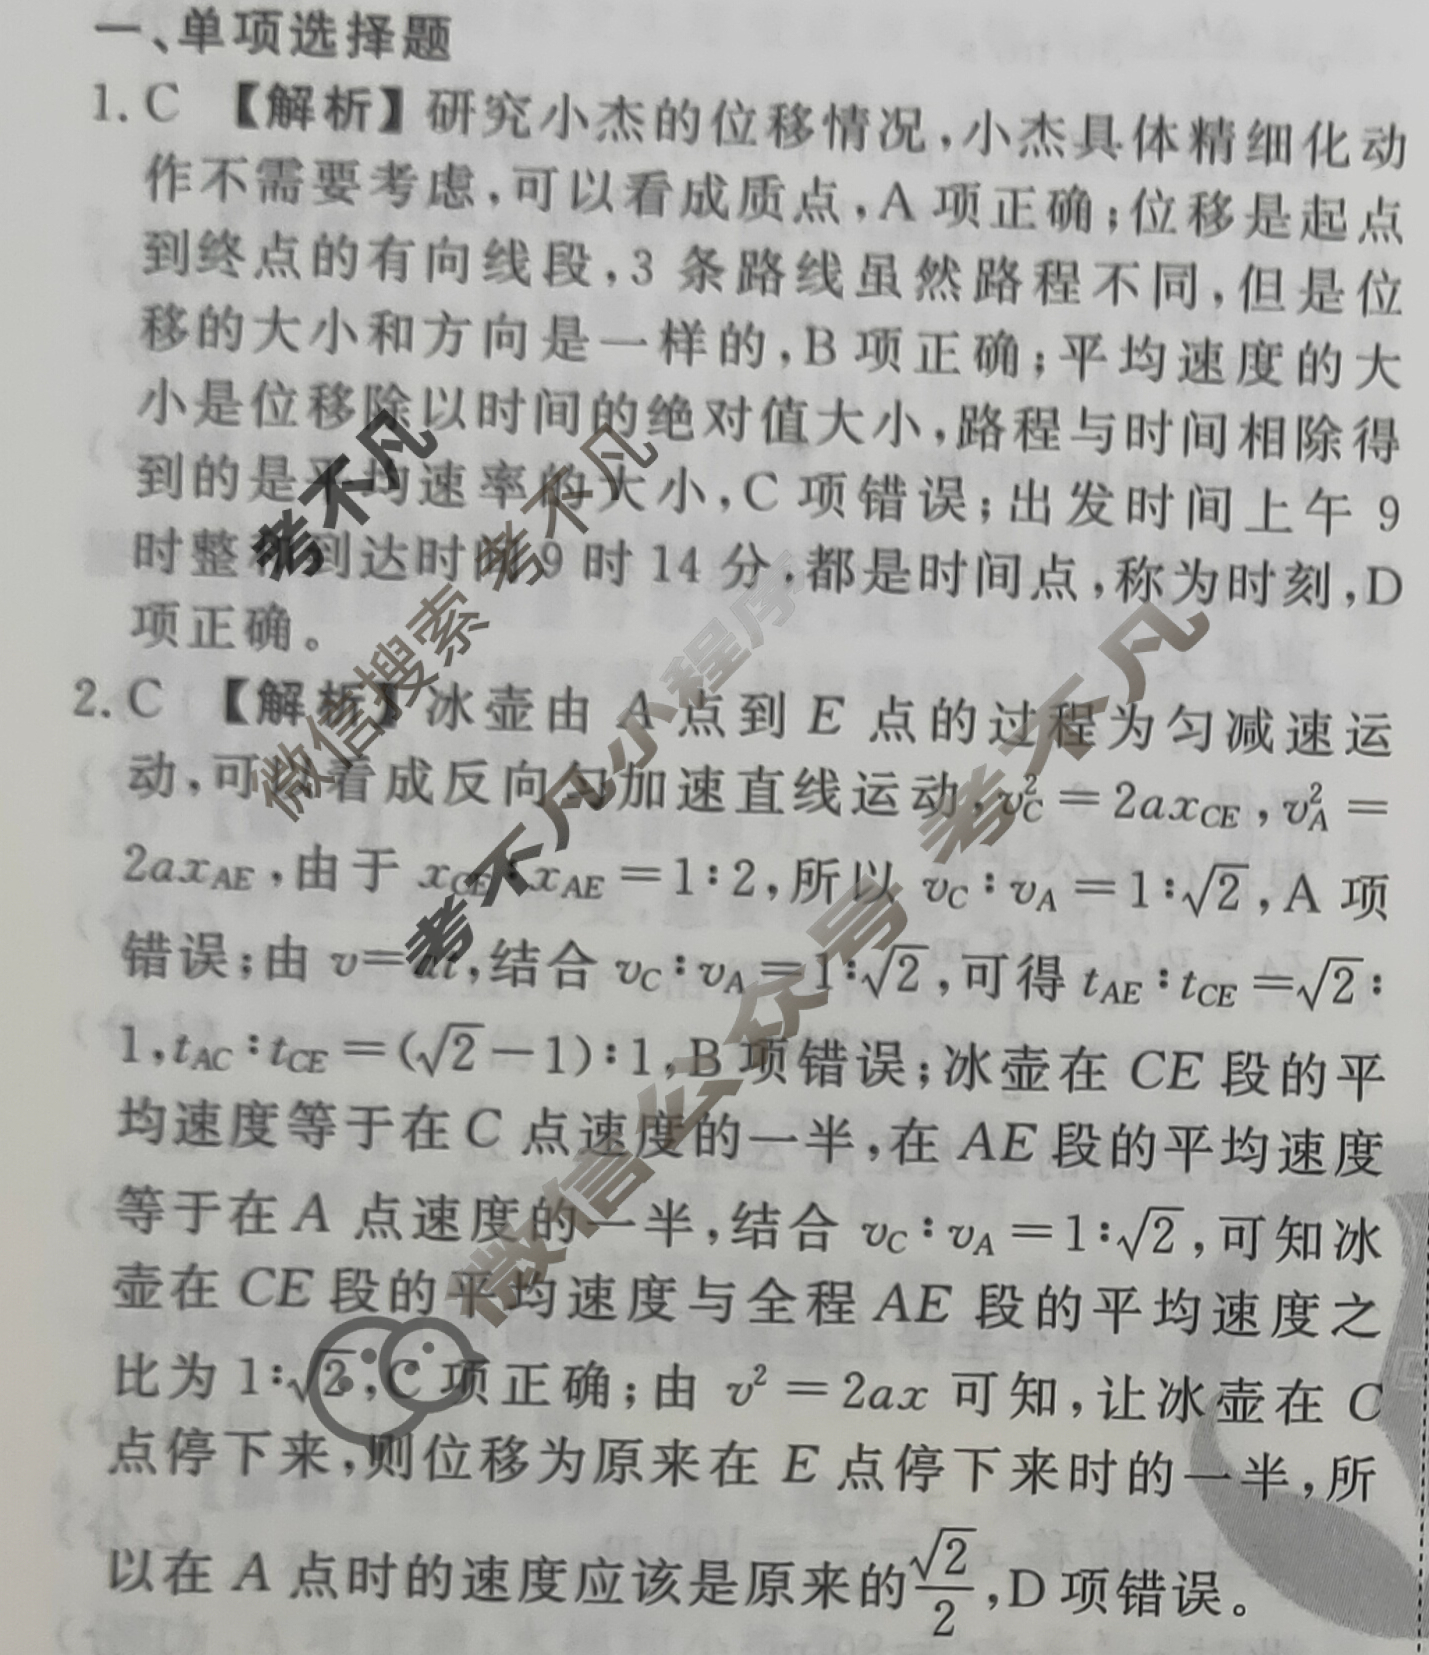 一、单项选择题
1. C 【解析】研究小杰的位移情况,小杰具体精细化动
作不需要考虑,可以看成质点,A 项正确;位移是起点
到终点的有向线段,3 条路线虽然路程不同,但是位
移的大小和方向是一样的,B 项正确;平均速度的大
小是位移除以时间的绝对值大小,路程与时间相除得
到的是平均速率的大小,C 项错误;出发时间上午 9
时整和到达时间 9 时 14 分,都是时间点,称为时刻,D
项正确。
2. C 【解析】冰壶由 A 点到 E 点的过程为匀减速运
动,可以看成反向匀加速直线运动,v_C^2=2ax_{CE},v_A^2=
2ax_{AE},由于 x_{CE}:x_{AE}=1:2,所以 v_C:v_A=1:√2,A 项
错误;由 v=at,结合 v_C:v_A=1:√2,可得 t_{AE}:t_{CE}=√2:
1,t_{AC}:t_{CE}=(√2-1):1,B 项错误;冰壶在 CE 段的平
均速度等于在 C 点速度的一半,在 AE 段的平均速度
等于在 A 点速度的一半,结合 v_C:v_A=1:√2,可知冰
壶在 CE 段的平均速度与全程 AE 段的平均速度之
比为 1:√2,C 项正确;由 v²=2ax 可知,让冰壶在 C
点停下来,则位移为原来在 E 点停下来时的一半,所
以在 A 点时的速度应该是原来的√2/2,D 项错误。
考不凡
微信搜索 考不凡
考不凡小程序
微信公众号 考不凡